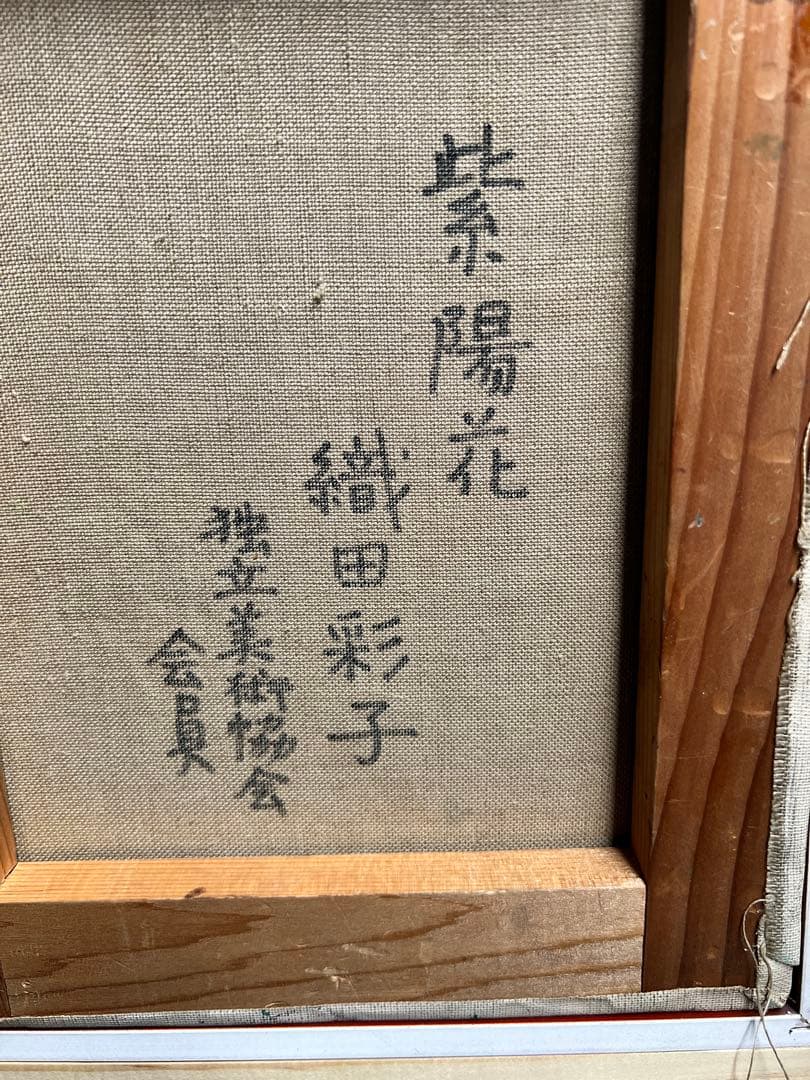 紫陽花
織田彩子
独立美術協会
会員